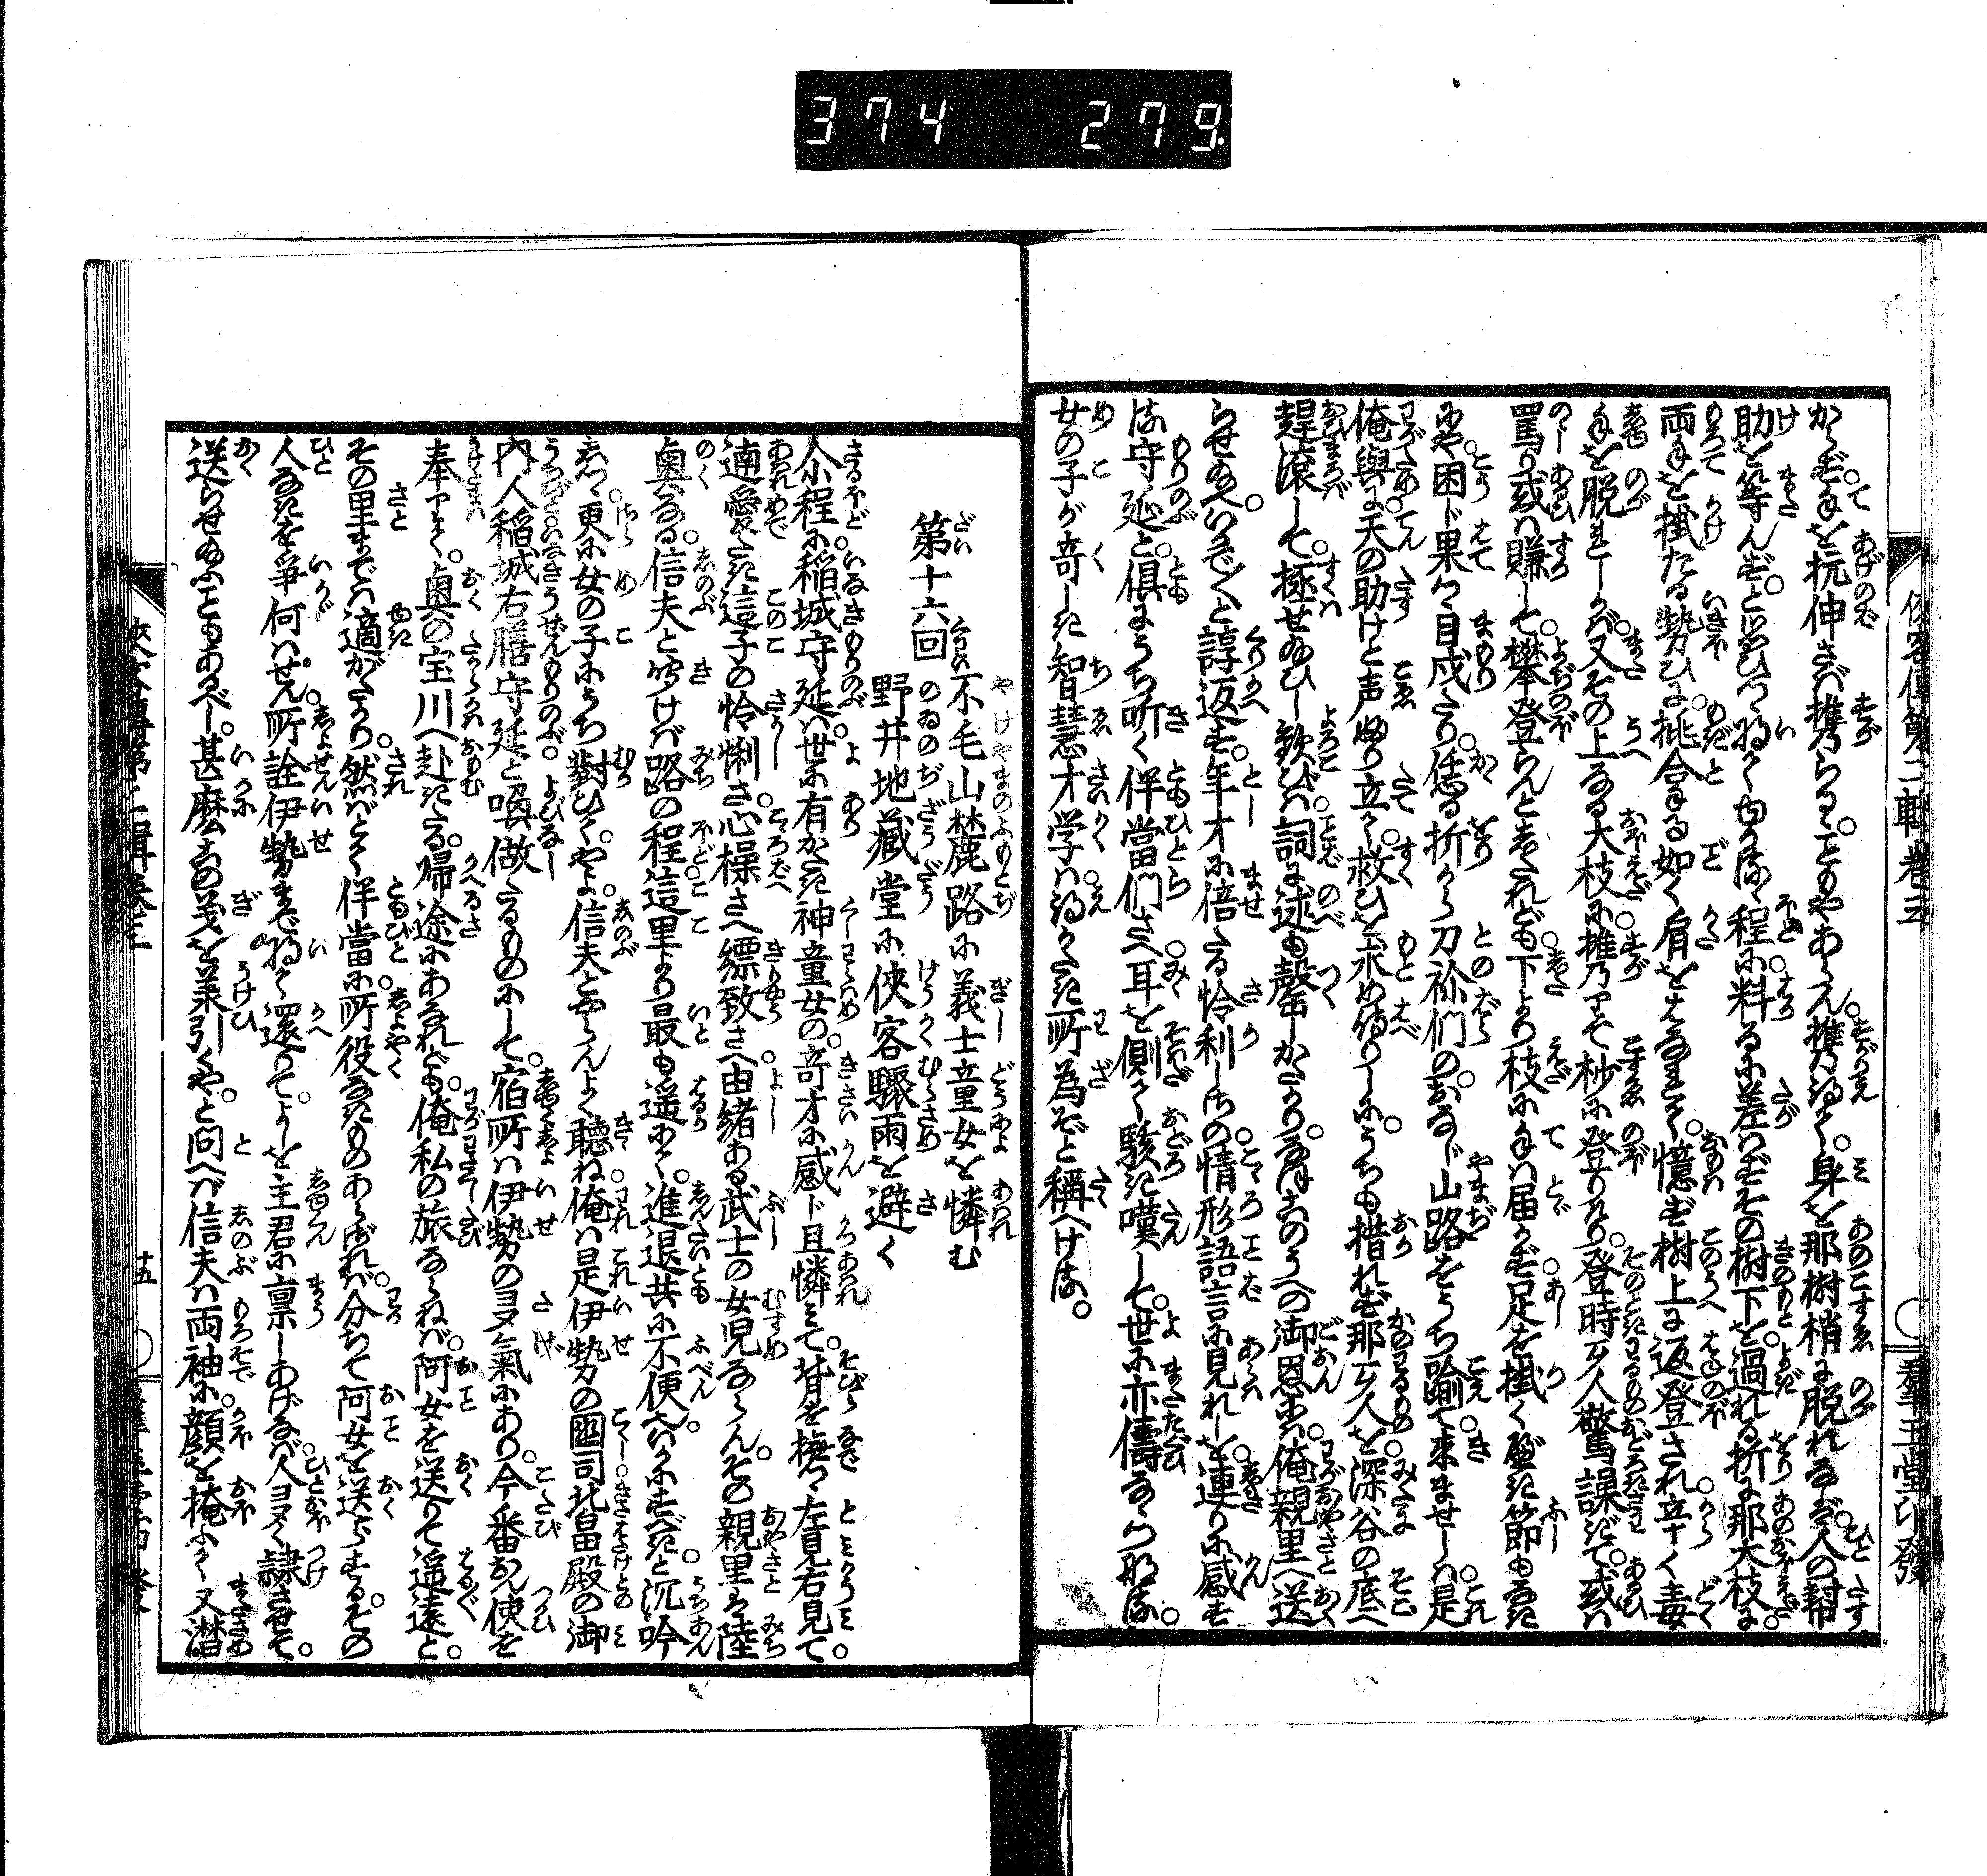 374 279
俠客傳第二輯卷三
羣玉堂印發
からず。手を抗伸さば携らるゝこともやあらん。携り得て。身を那樹梢に脱れなば。人の幇
助を等んず。と思ひつゝ

行く程に料るに差はずその樹下を過れる折に那大枝に
両手を掛たる勢ひに。挑合する如く肩をはなれて。憶ず樹上に返登され立て毒
手を脱れしが。又その上なる大枝に携りて杪に登りけり。登時歹人驚謀て。或は
罵り或は賺して。攀登らんとしたれども。下より枝に手は届かず。足を掛くべき節もなき
にや。困じ果て目戍たり。恁る折から刀祢們の。おなじ山路をうち踰て来ませしは。是
俺與に天の助けと声ふり立て。救ひを求め侍りしに。うちも措れず那歹人を深谷の底へ
趕滾して。拯せ給ひし歓びは。詞に述も罄しがたかり。なほこのうへの御恩には。俺親里へ送
らせ給へ。いでいでと諄返す。年才に倍たる怜利しさの。情形語言に見れしを。連りに感ず
る守延と。俱にうち听く伴當們さへ耳を側て駭き嘆じて。世に亦儔なからんかな。
女の子が奇しき智慧才学は。得がたき所為ぞと稱へける。
第十六回
不毛山麓路に義士童女を憐む
野井地藏堂に俠客驟雨を避く
介小程に。稲城守延は。世に有がたき神童女の。奇才に感じ且憐みて。背を撫つゝ左見右見て。
適愛たき這子の怜悧さ。心操さへ縹致さへ。由緒ある武士の女児ならん。その親里は陸
奥なる。信夫と聞けば路の程。這里より最も遥にて。進退共に不便也。いかにすべきと沉吟
しつゝ。更に女の子にうち對ひて。やよ。信夫とやらんよく聴ね。俺は是伊勢の國司。北畠殿の御
内人。稲城右膳守延と喚做たるものにして。宿所は伊勢の多氣にあり。今番おん使を
奉りて。奥の宝川へ赴きたる。帰途にあなれども。俺私の旅ならねば。阿女を送りて遥遠と。
その里までは適がたかり。然ばとて伴當に。所役なきものあらざれば。分ちて阿女を送らする。その
人なきを爭何はせん。所詮伊勢まで将て還りて。よしを主君に稟しあげなば。人をして隷させて。
送らせ給ふこともあるべし。甚麼この義を美引くや。と問へば信夫は両袖に。顔を掩ふて又潸
俠客傳第二輯卷三
十五